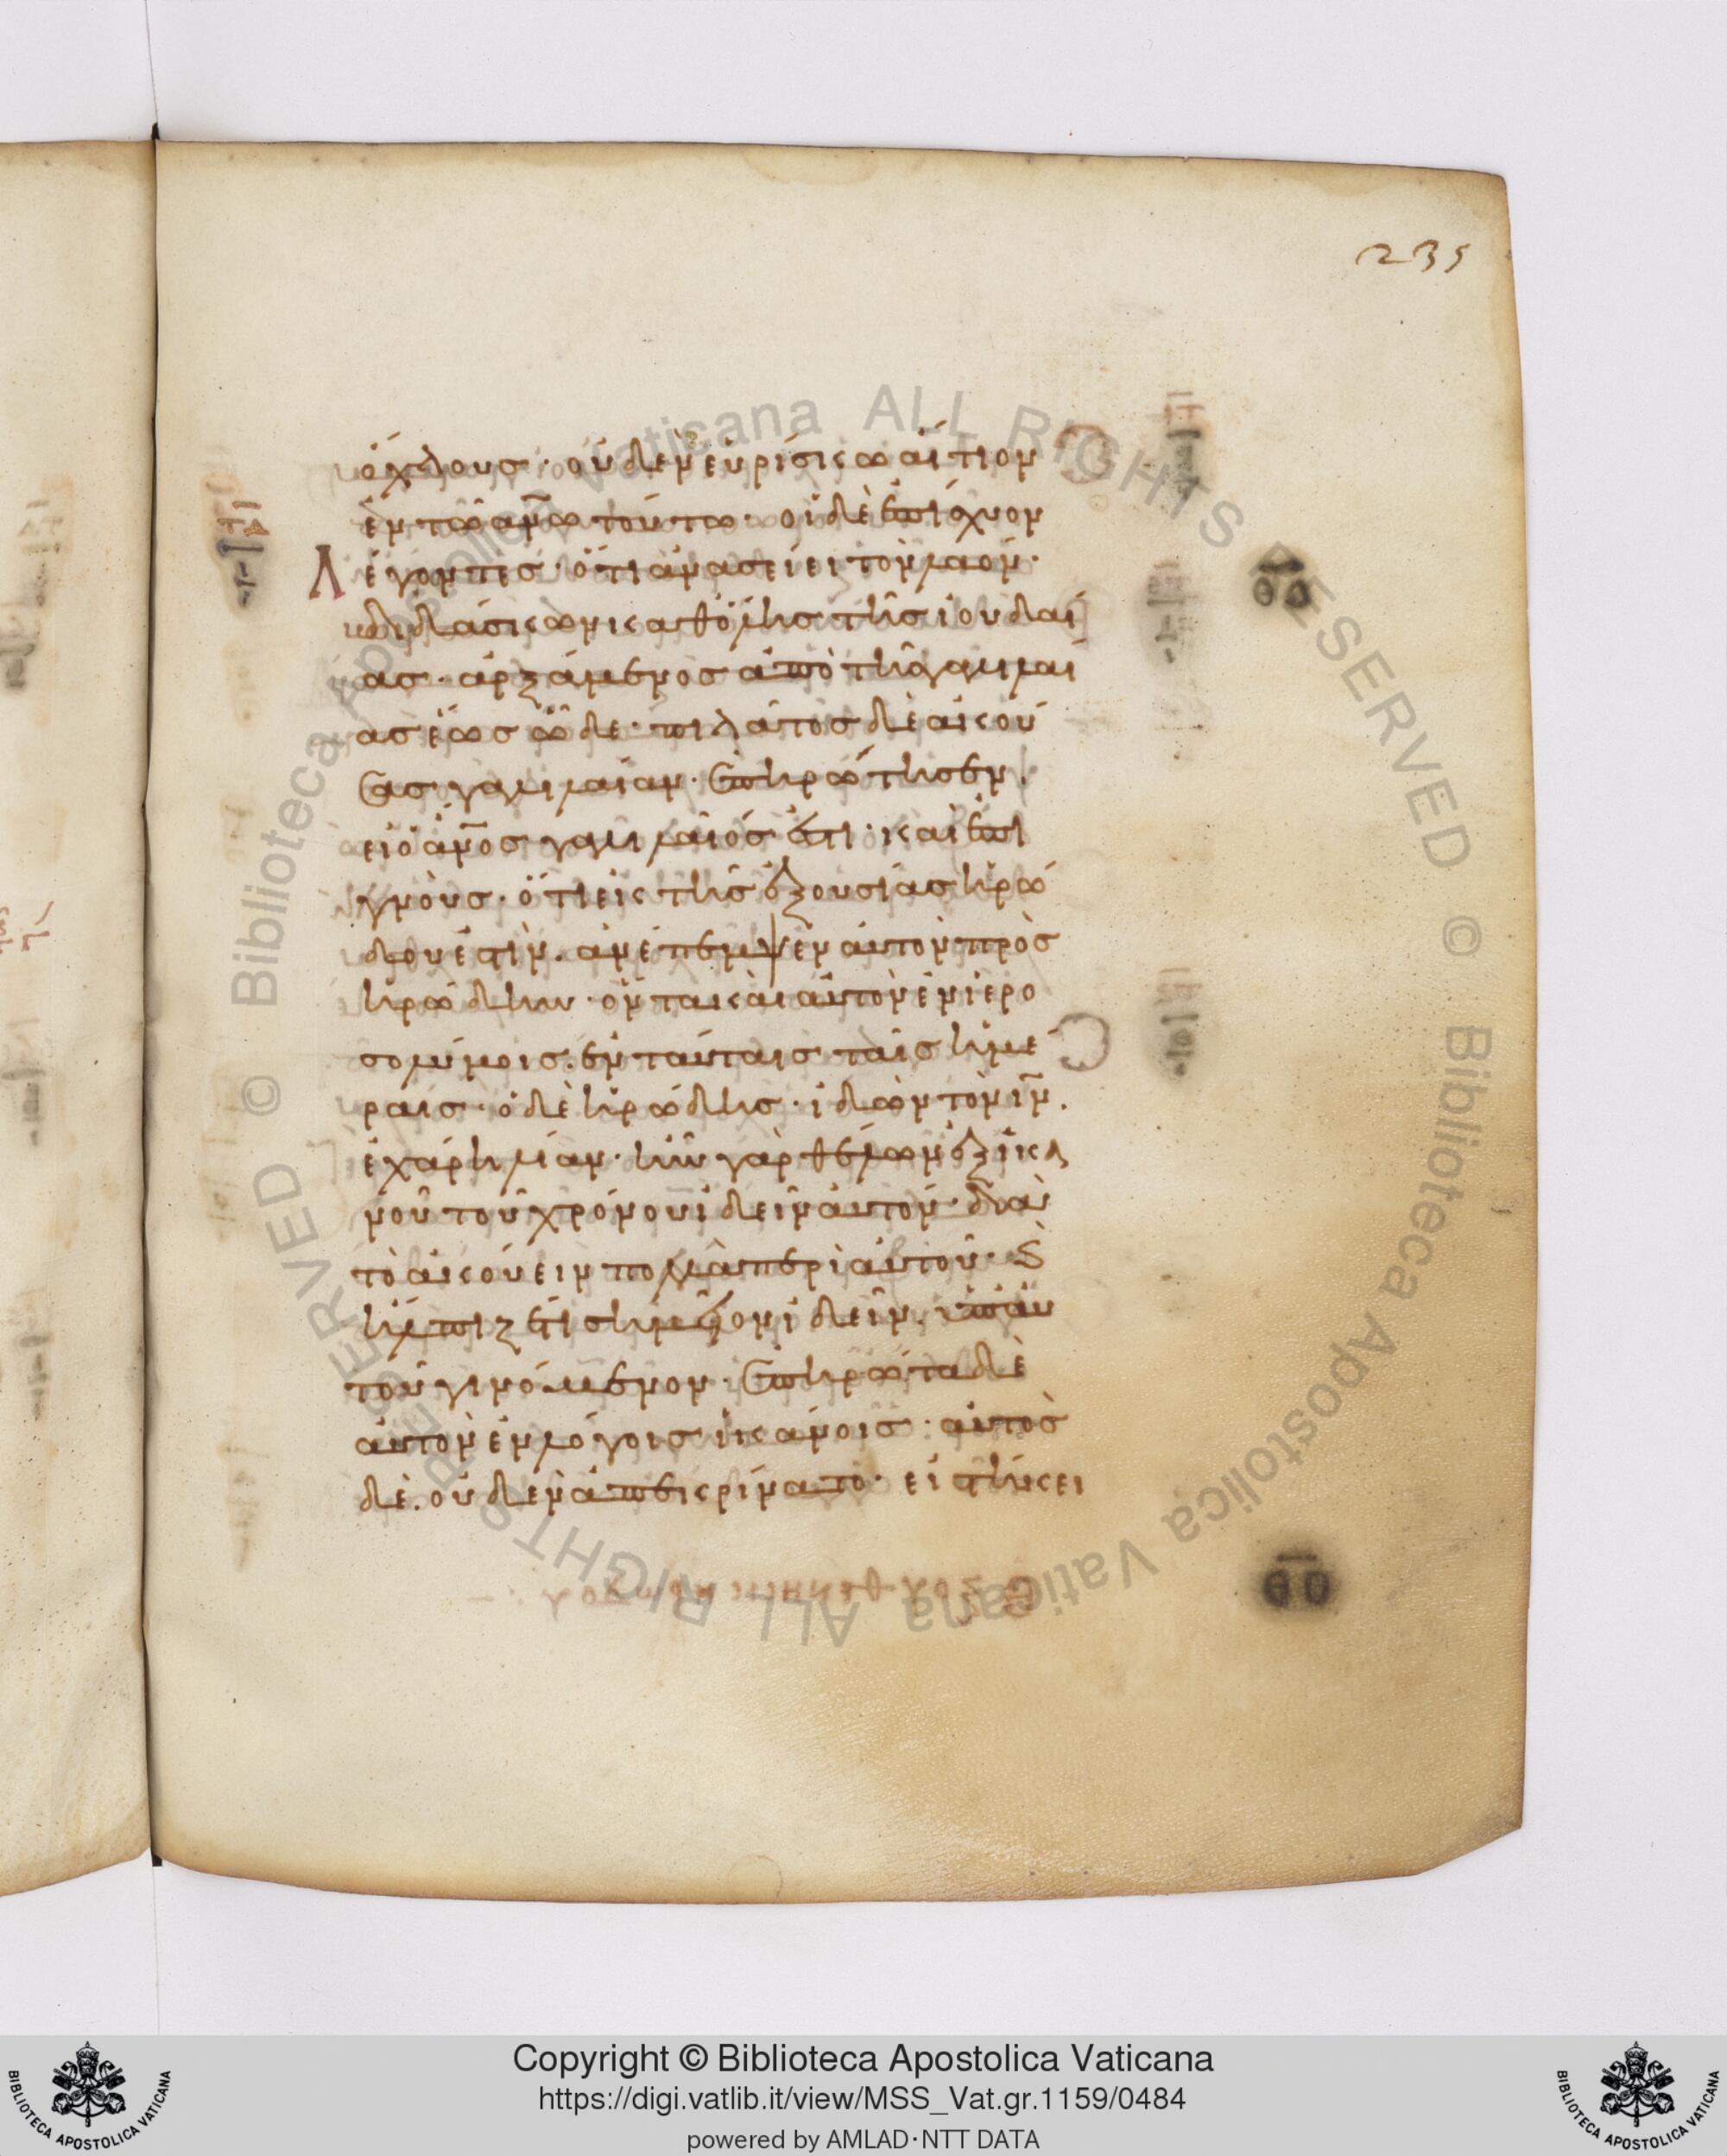 235
ὄχλους· οὐδὲν εὑρίσκω αἴτιον
ἐν τῶ ἀν̅ω τούτω· οἱ δὲ ἐπίσχυον
λέγοντες· ὅτι ἀνασείει τὸν λαόν·
διδάσκων καθ' ὅλης τῆς ἰουδαί
ας· ἀρξάμενος ἀπὸ τῆς γαλιλαί
ας ἕως ὧδε· πιλάτος δὲ ἀκού
σας γαλιλαίαν· ἐπηρώτησεν.
εἰ ὁ ἀν̅ος γαλιλαῖός ἐστι· καὶ ἐπι
γνοὺς· ὅτι ἐκ τῆς ἐξουσίας ἡρώ
δου ἐστὶν. ἀνέπεμψεν αὐτὸν πρὸς
ἡρώδην· ὄντα καὶ αὐτὸν ἐν ἱερο
σολύμοις. ἐν ταύταις ταῖς ἡμέ
ραις· ὁ δὲ ἡρώδης· ἰδὼν τὸν ἰ̅ν.
ἐχάρη λίαν· ἦν γὰρ θέλων ἐξ ἱκα
νοῦ τοῦ χρόνου ἰδεῖν αὐτόν· διὰ
τὸ ἀκούειν πολλὰ περὶ αὐτοῦ· ϗ
ἤλπιζέ τι σημεῖον ἰδεῖν. ὑπ' αὐ
τοῦ γινόμενον· ἐπηρώτα δὲ
αὐτὸν ἐν λόγοις ἱκανοῖς· αὐτὸς
δὲ. οὐδὲν ἀπεκρίνατο· εἱστήκει
Copyright © Biblioteca Apostolica Vaticana
https://digi.vatlib.it/view/MSS_Vat.gr.1159/0484
powered by AMLAD·NTT DATA
BIBLIOTECA APOSTOLICA VATICANA
BIBLIOTECA APOSTOLICA VATICANA